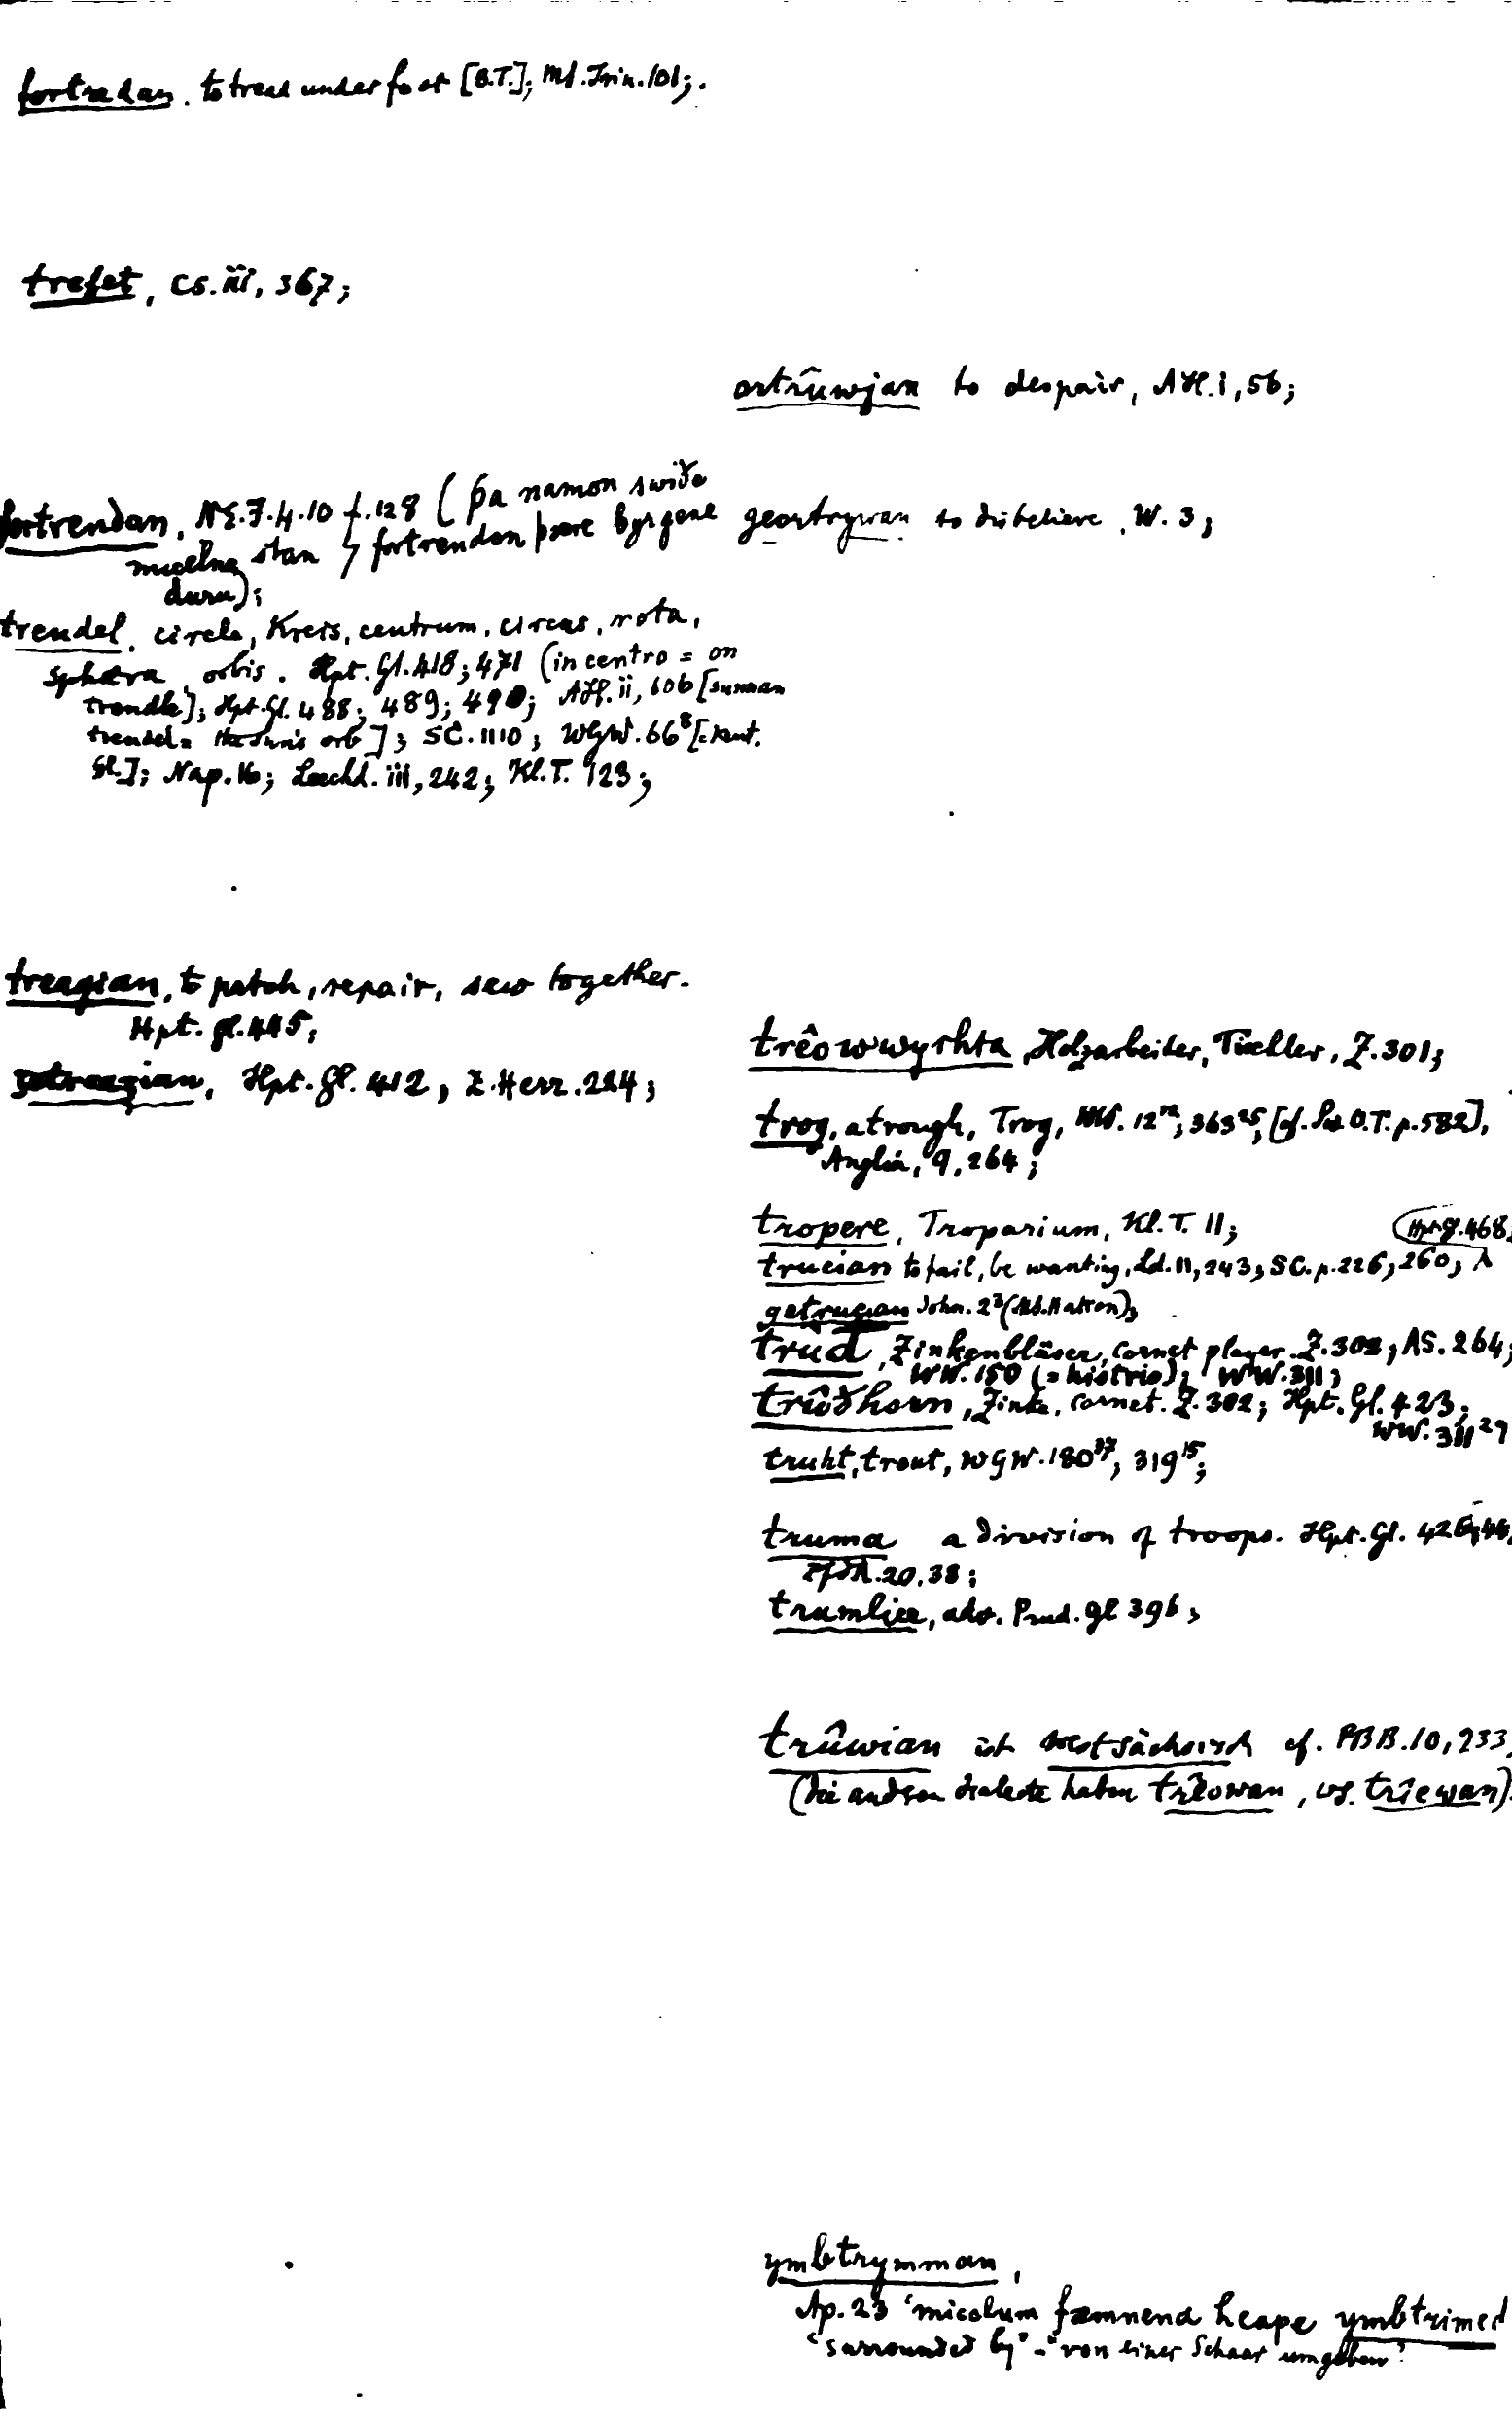 fortredan. to tread under foot [B.T.]; Ml. Trin. 101;.
trefet, CS. iii, 367;
fortrendan, NE. F. 4. 10 f. 128 ( þa namon swiðe
micelne stan ⁊ fortrendon þære byrgene
duru);
trendel, circle, Kreis, centrum, circus, rota,
sphæra, orbis. Hpt. Gl. 418; 471 (in centro = on
trendle]; Hpt. Gl. 488; 489; 490; ii, 606 [sunnan
trendel = the sun's orb ]; SC. 1110; WGW. 66⁸ [Kent.
Gl.]; Nap. 16; Leechd. iii, 242; Kl. T. 123;
treagian, to patch, repair, sew together.
Hpt. gl. 445;
getreagian, Hpt. Gl. 412, Z. Herr. 224;
ortrûwjan to despair, i, 56;
geortrywan to disbelieve. W. 3;
trêowwyrhta, Holzarbeiter, Tischler, Z. 301;
trog, a trough, Trog, WW. 12¹², 363²⁵, [cf. O.T. p. 582],
Anglia, 9, 264;
tropere, Troparium, Kl. T. 11;
Hpt gl. 468,
trucian to fail, be wanting, Ld. 11, 243, SC. p. 226; 260;
getrucian John. 2³ (Ms. Hatton);
trud, Zinkenbläser, cornet player. Z. 302; AS. 264;
WW. 150 (= histrio); WW. 311;
trûðhorn, Zinke, cornet. Z. 302; Hpt. Gl. 423;
WW. 311²⁹
truht, trout, WGW. 180³⁷, 319¹⁵;
truma a division of troops. Hpt. Gl. 426;
20, 38;
trumlice, adv. Prud. gl 396;
trûwian ist westsächsisch cf. PBB. 10, 233,
(die andren dialecte haben trêowan, ws. trîewan)
ymbtrymman,
Ap. 23 'micelum fæmnena heape ymbtrimed
"surrounded by" - "von einer Schaar umgeben"